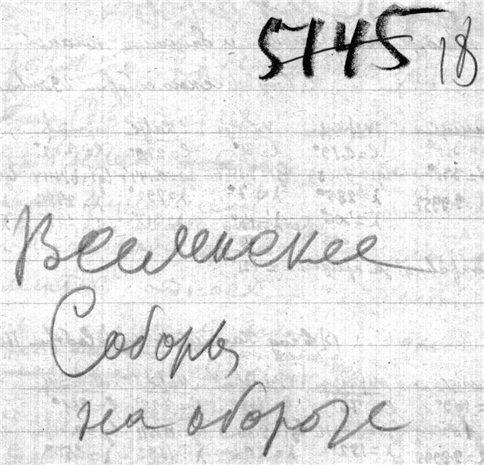 5145 18
Вселенские
Соборы
на обороте